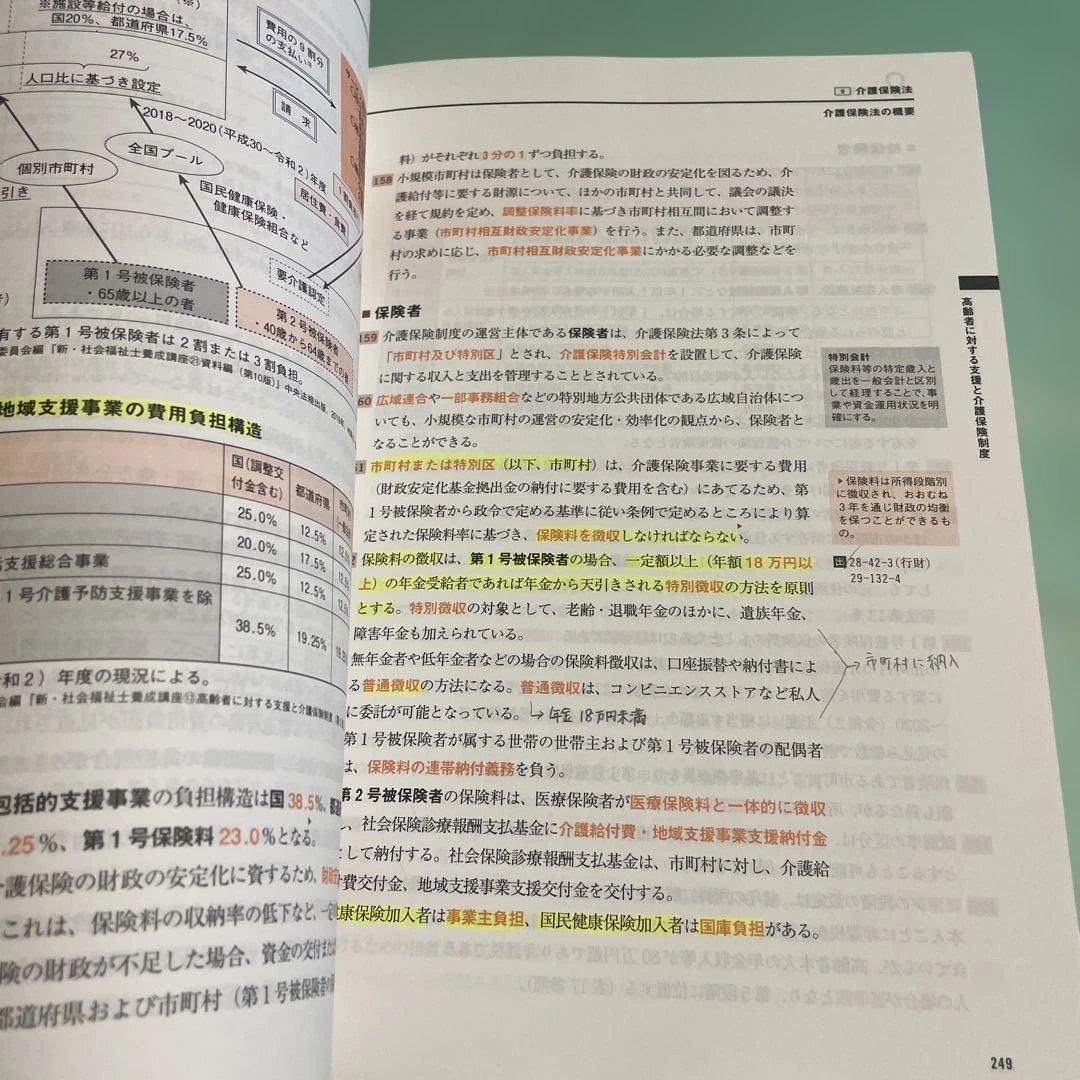 (※)
※施設等給付の場合は、
国20%、都道府県17.5%
27%
人口比に基づき設定
費用の9割分
の支払い
請求
2018～2020(平成30～令和2)年度
全国プール
個別市町村
引き
国民健康保険・
健康保険組合など
居住費・食費
要介護認定
第1号被保険者
・65歳以上の者
第2号被保険者
・40歳から64歳までの者
有する第1号被保険者は2割または3割負担。
委員会編『新・社会福祉士養成講座㉑資料編（第10版）』中央法規出版、
地域支援事業の費用負担構造
国(調整交
付金含む)
都道府県
25.0%
12.5%
20.0%
17.5%
12.5%
支援総合事業
25.0%
12.5%
12.5%
1号介護予防支援事業を除
38.5%
19.25%
和2）年度の現況による。
会編『新・社会福祉士養成講座⑬高齢者に対する支援と介護保険制度
包括的支援事業の負担構造は国38.5%、
.25%、第1号保険料23.0%となる。
護保険の財政の安定化に資するため、
これは、保険料の収納率の低下など、
険の財政が不足した場合、資金の交付
都道府県および市町村（第1号被保険者の
9 介護保険法
介護保険法の概要
料）がそれぞれ3分の1ずつ負担する。
158 小規模市町村は保険者として、介護保険の財政の安定化を図るため、介
護給付等に要する財源について、ほかの市町村と共同して、議会の議決
を経て規約を定め、調整保険料率に基づき市町村相互間において調整す
る事業（市町村相互財政安定化事業）を行う。また、都道府県は、市町
村の求めに応じ、市町村相互財政安定化事業にかかる必要な調整などを
行う。
■ 保険者
159 介護保険制度の運営主体である保険者は、介護保険法第3条によって
「市町村及び特別区」とされ、介護保険特別会計を設置して、介護保険
に関する収入と支出を管理することとされている。
60 広域連合や一部事務組合などの特別地方公共団体である広域自治体につ
いても、小規模な市町村の運営の安定化・効率化の観点から、保険者と
なることができる。
61 市町村または特別区（以下、市町村）は、介護保険事業に要する費用
（財政安定化基金拠出金の納付に要する費用を含む）にあてるため、第
1号被保険者から政令で定める基準に従い条例で定めるところにより算
定された保険料率に基づき、保険料を徴収しなければならない。
保険料の徴収は、第1号被保険者の場合、一定額以上（年額18万円以
上）の年金受給者であれば年金から天引きされる特別徴収の方法を原則
とする。特別徴収の対象として、老齢・退職年金のほかに、遺族年金、
障害年金も加えられている。
無年金者や低年金者などの場合の保険料徴収は、口座振替や納付書によ
る普通徴収の方法になる。普通徴収は、コンビニエンスストアなど私人
に委託が可能となっている。
→年金18万円未満
→市町村に納入
第1号被保険者が属する世帯の世帯主および第1号被保険者の配偶者
は、保険料の連帯納付義務を負う。
第2号被保険者の保険料は、医療保険者が医療保険料と一体的に徴収
し、社会保険診療報酬支払基金に介護給付費・地域支援事業支援納付金
として納付する。社会保険診療報酬支払基金は、市町村に対し、介護給
付費交付金、地域支援事業支援交付金を交付する。
健康保険加入者は事業主負担、国民健康保険加入者は国庫負担がある。
特別会計
保険料等の特定歳入と
歳出を一般会計と区別
して経理することで、事
業や資金運用状況を明
確にする。
▶保険料は所得段階別
に徴収され、おおむね
3年を通じ財政の均衡
を保つことができるも
の。
出 28-42-3(行財)
29-132-4
高齢者に対する支援と介護保険制度
249